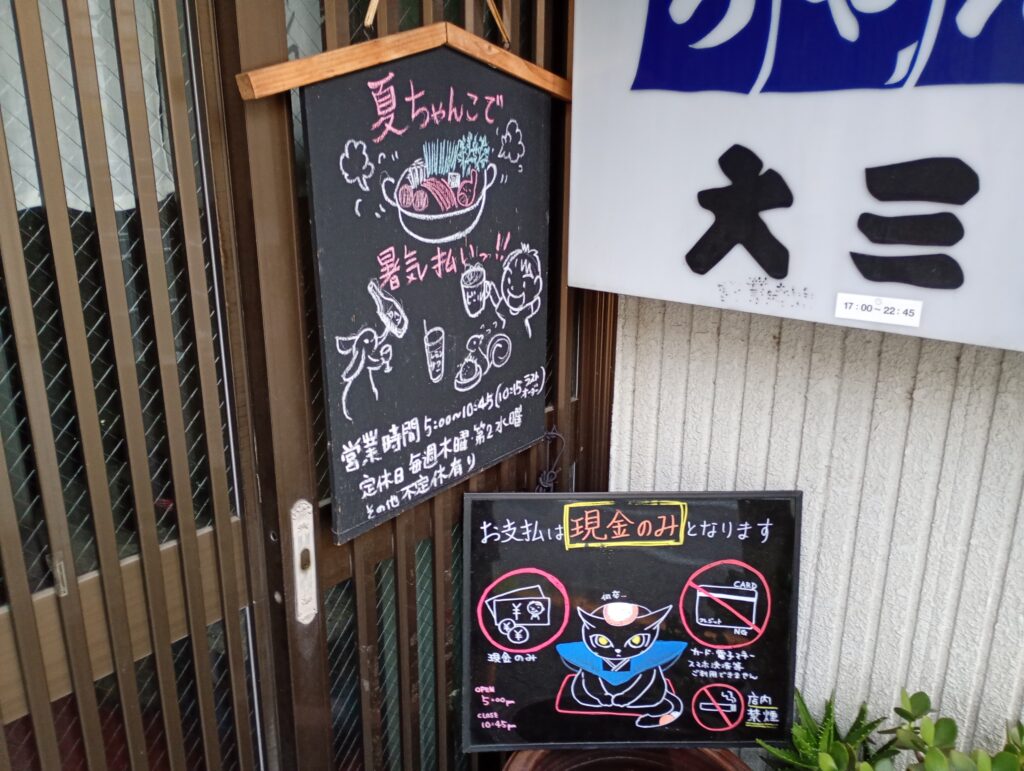 夏ちゃんこで
暑気払いっ!!
ビール
営業時間 5:00~10:45(10:15ラストオーダー)
定休日 毎週木曜・第2水曜
その他 不定休有り
大三
17:00~22:45
お支払は現金のみとなります
現金のみ
OPEN
5:00pm
CLOSE
10:45pm
CARD
クレジット
NG
カード・電子マネー
スマホ決済等
ご利用できません
店内
禁煙